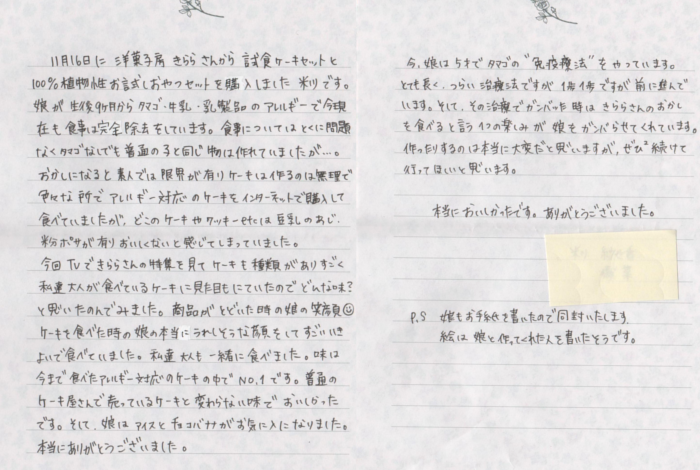 11月16日に 洋菓子房 きららさんから 試食ケーキセットと
100%植物性お試しおやつセットを購入しました 米リです。
娘が生後9カ月からタマゴ・牛乳・乳製品のアレルギーで今現
在も食事は完全除去をしています。食事についてはとくに問題
なくタマゴなしでも普通の子と同じ物は作れていましたが…。
おかしになると素人では限界が有りケーキは作るのは無理で
色々な所でアレルギー対応のケーキをインターネットで購入して
食べていましたが、どこのケーキやクッキーetcは豆乳のあじ、
粉ボサが有りおいしくないと感じてしまっていました。
今回TVできららさんの特集を見てケーキも種類がありすごく
私達大人が食べているケーキに見た目もにていたのでどんな味?
と思いたのんでみました。商品がとどいた時の娘の笑顔☺
ケーキを食べた時の娘の本当にうれしそうな顔をしてすごいいき
よいで食べていました。私達大人も一緒に食べました。味は
今まで食べたアレルギー対応のケーキの中でNO.1です。普通の
ケーキ屋さんで売っているケーキと変わらない味でおいしかった
です。そして、娘はアイスとチョコバナナがお気に入になりました。
本当にありがとうございました。
今、娘は5才でタマゴの"免疫療法"をやっています。
とても長く、つらい治療法ですが1歩1歩ですが前に進んで
います。そして、その治療でガンバッタ時はきららさんのおかし
を食べると言う1つの楽しみが娘をガンバらせてくれています。
作ったりするのは本当に大変だと思いますが、ぜひ続けて
行ってほしいと思います。
本当においしかったです。ありがとうございました。
P.S 娘もお手紙を書いたので同封いたします
絵は娘と作ってくれた人を書いたそうです。